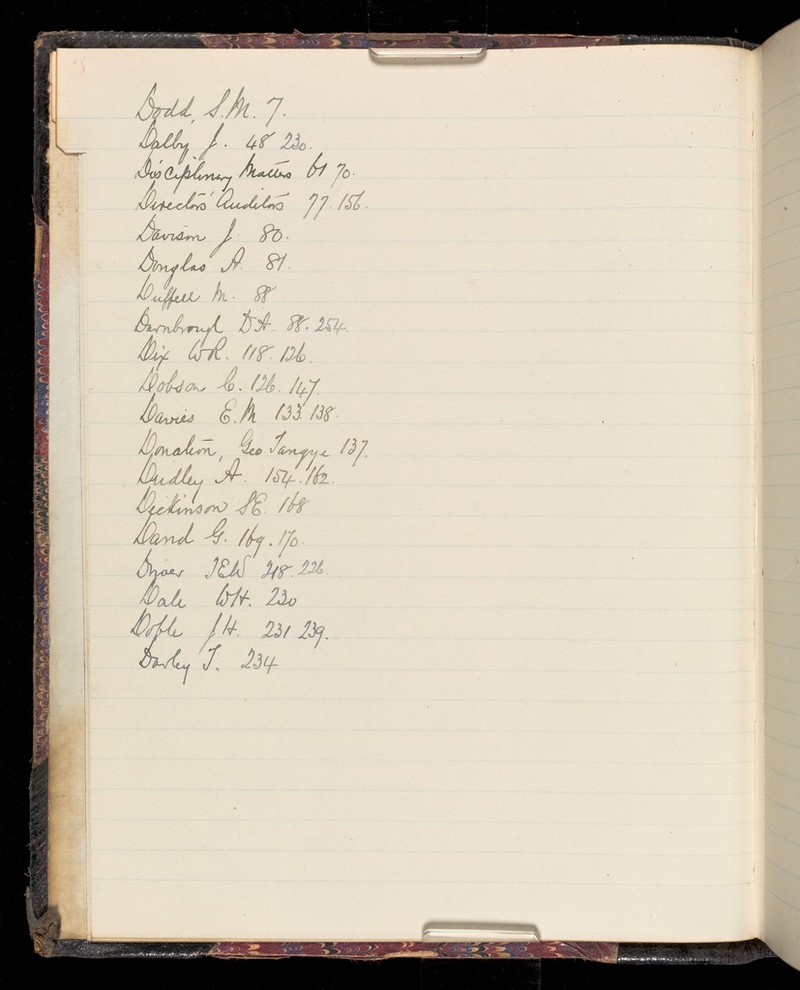 Dodd, S.M. 7.
Dalby J. 48 230.
Disciplinary Matters 61 70.
Directors' Auditors 77. 156.
Davison J. 80.
Douglas A. 81.
Duffell M. 88
Darnbrough D.A. 88. 254.
Dix W.R. 118. 126.
Dobson C. 126. 147.
Davies E.M 133. 138.
Donation, Geo Tangye 137.
Dudley A. 154. 162.
Dickinson S.E. 168
Dand G. 169. 170.
Driver J.E.W 218. 226.
Dale W.H. 230
Doble J.H. 231 239.
Darley T. 234